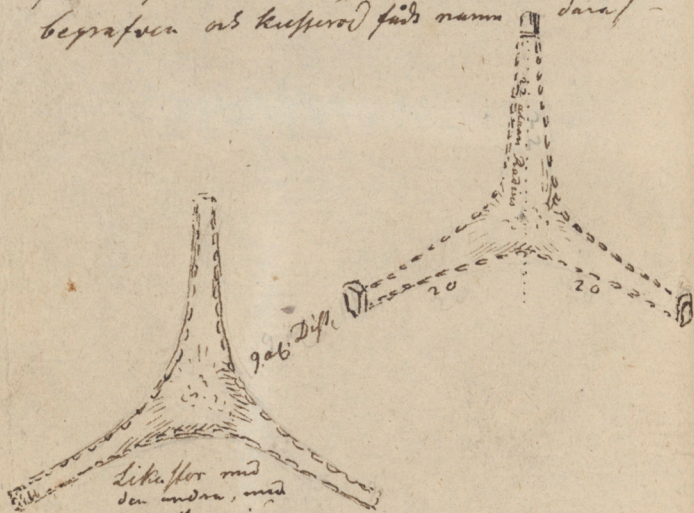 begrafven och kusserod fådt namn daraf -
12 alnar Radius
20
20
9 al. Dist.
Likastor med
den andra, med